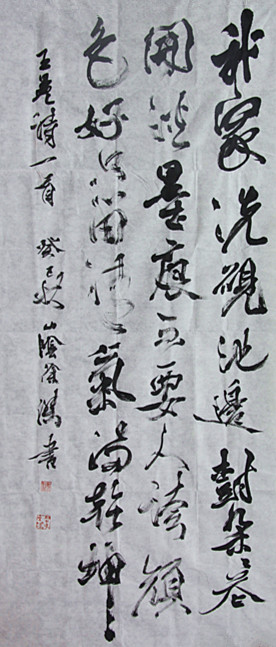 我家洗硯池邊樹朵〻花
開淡墨痕不要人誇顏
色好只留清氣滿乾坤
王冕詩一首 癸巳秋 山陰徐書